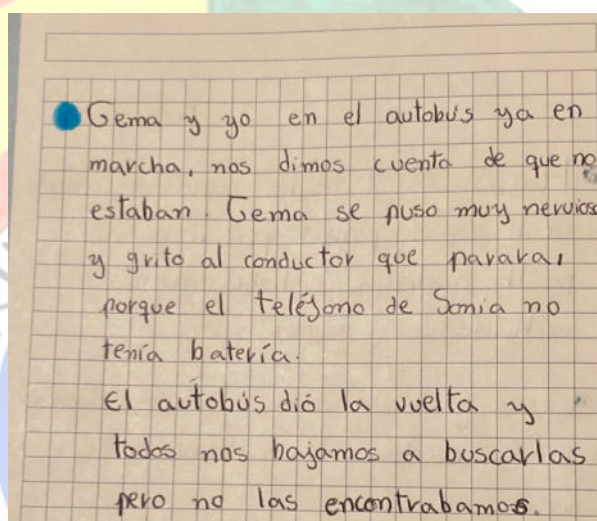 Gema y yo en el autobús ya en
marcha, nos dimos cuenta de que no
estaban. Gema se puso muy nervios
y grito al conductor que parara,
porque el teléfono de Sonia no
tenía batería.
El autobús dió la vuelta y
todos nos bajamos a buscarlas
pero no las encontrabamos.